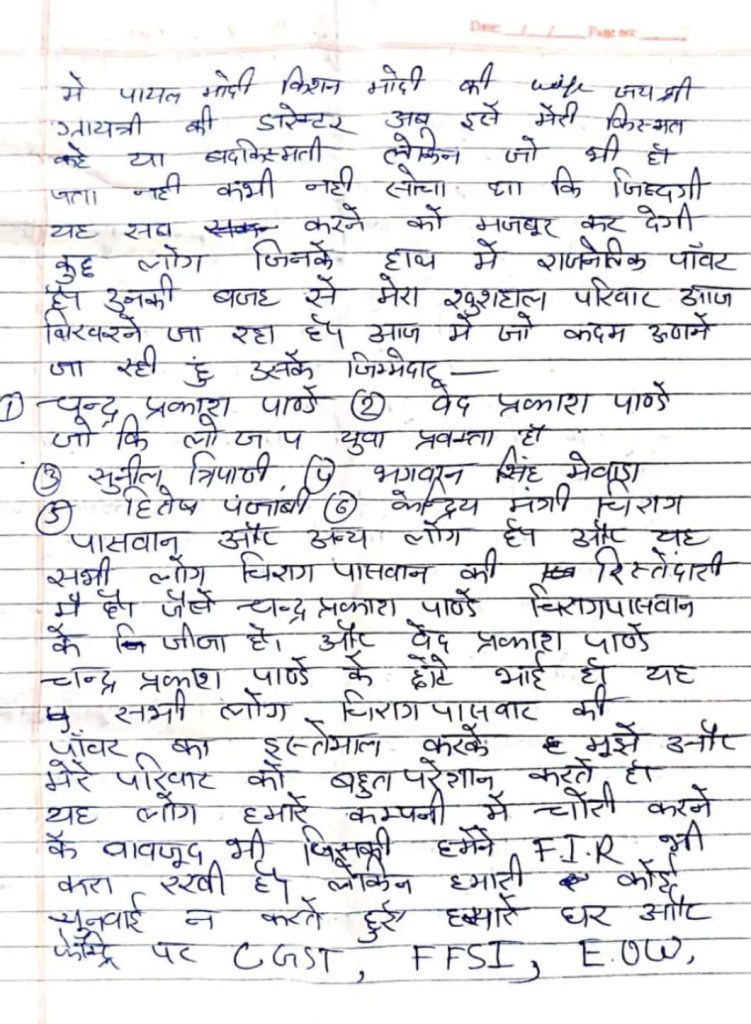 Date: / / Page no:
मे पायल मोदी किशन मोदी की wife जय श्री
गायत्री की डारेन्टर अब इसे मेरी किस्मत
कहे या बदकिस्मती लेकिन जो भी हो
पता नही कभी नही सोचा था कि जिन्दगी
यह सब करने को मजबूर कर देगी
कुछ लोग जिनके हाथ में राजनेतिक पॉवर
है। उनकी बजह से मेरा खुशहाल परिवार आज
बिखरने जा रहा है। आज मे जो कदम उठाने
जा रही हुं उसके जिम्मेदार —
① चन्द्र प्रकाश पाण्डे ② वेद प्रकाश पाण्डे
जो कि लो ज प युवा प्रवक्ता है
③ सुनील त्रिपाठी, ④ भगवान सिंह मेवाडा
⑤ हितेष पंजाबी ⑥ केन्द्रिय मंत्री चिराग
पासवान और अन्य लोग है। और यह
सभी लोग चिराग पासवान की रिस्तेदारी
मे है। जैसे चन्द्र प्रकाश पाण्डे चिराग पासवान
के जीजा है। और वेद प्रकाश पाण्डे
चन्द्र प्रकाश पाण्डे के छोटे भाई है। यह
सभी लोग चिराग पासवाट की
पॉवर का इस्तेमाल करके मुझे और
मेरे परिवार को बहुत परेशान करते है।
यह लोग हमारे कम्पनी में चोरी करने
के वावजूद भी जिसकी हमने F.I.R भी
करा रखी है। लेकिन हमारी कोई
सुनवाई न करते हुए हमारे घर और
फेक्ट्रि पर CGST, FFSI, E.OW,